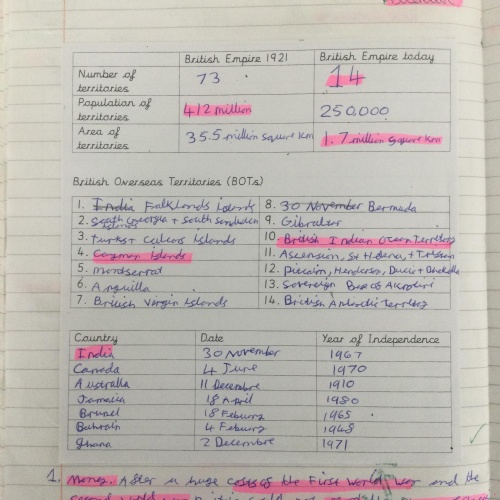 British Empire 1921 British Empire today
Number of territories 73 14
Population of territories 412 million 250,000
Area of territories 35.5 million square km 1.7 million square km
British Overseas Territories (BOTs)
1. India Falklands islands
2. South Georgia + South Sandwich islands
3. turks + Caicos Islands
4. Cayman islands
5. montserrat
6. Anguilla
7. British Virgin islands
8. 30 November Bermuda
9. Gibraltar
10. British Indian Ocean Territory
11. Ascension, St Helena, + Tristan
12. Pitcairn, Henderson, Ducie +
13. Sovereign Akrotiri
14. British Antarctic Territory
Country Date Year of Independence
India 30 November 1967
Canada 4 June 1970
Australia 11 Decembre 1910
Jamaica 18 April 1980
Brunei 18 Feburg 1965
Bahrain 4 Feburg
Ghana 2 Decembre 1971
1. Money. After a huge costs of the First World War and the
second world war